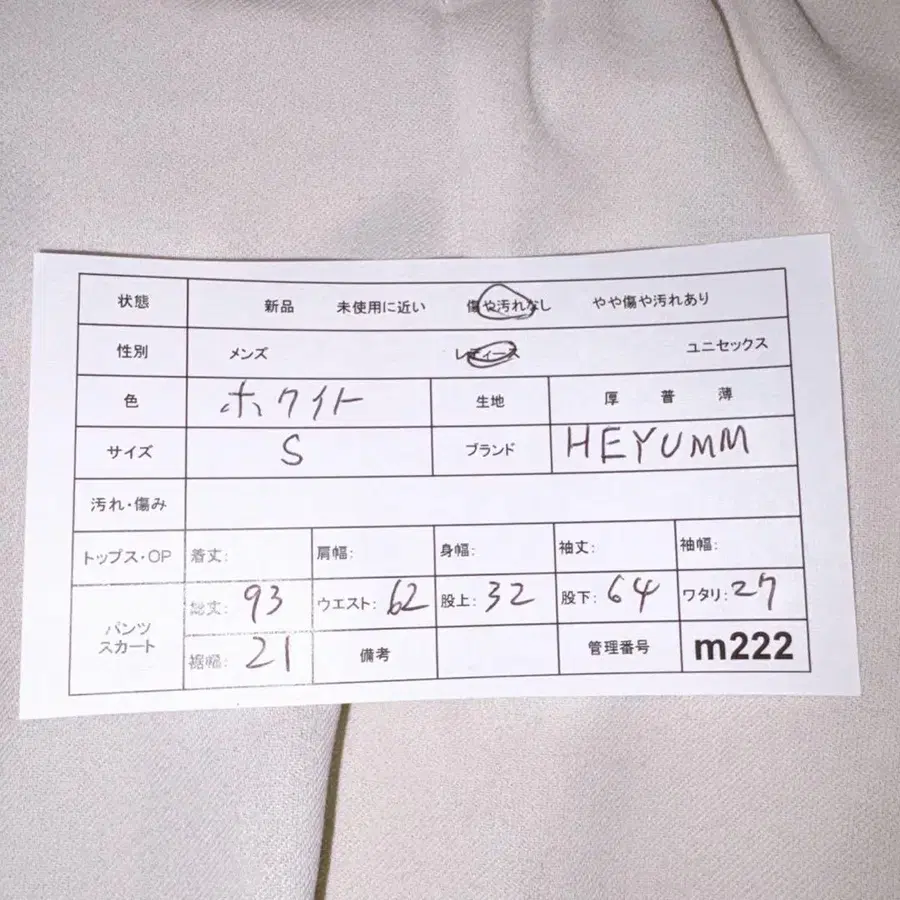 状態 新品 未使用に近い 傷や汚れなし やや傷や汚れあり
性別 メンズ レディース ユニセックス
色 ホワイト 生地 厚 普 薄
サイズ S ブランド HEYUMM
汚れ・傷み
トップス・OP 着丈: 肩幅: 身幅: 袖丈: 袖幅:
パンツ
スカート
総丈: 93 ウエスト: 62 股上: 32 股下: 64 ワタリ: 27
裾幅: 21 備考 管理番号 m222